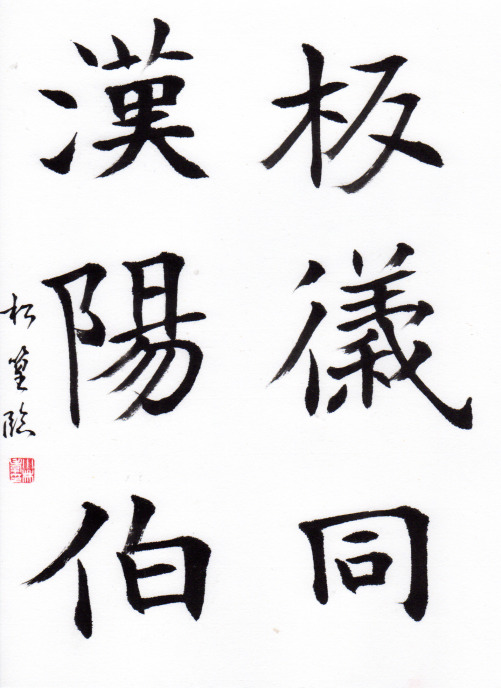 板儀同
漢陽伯
松篁臨